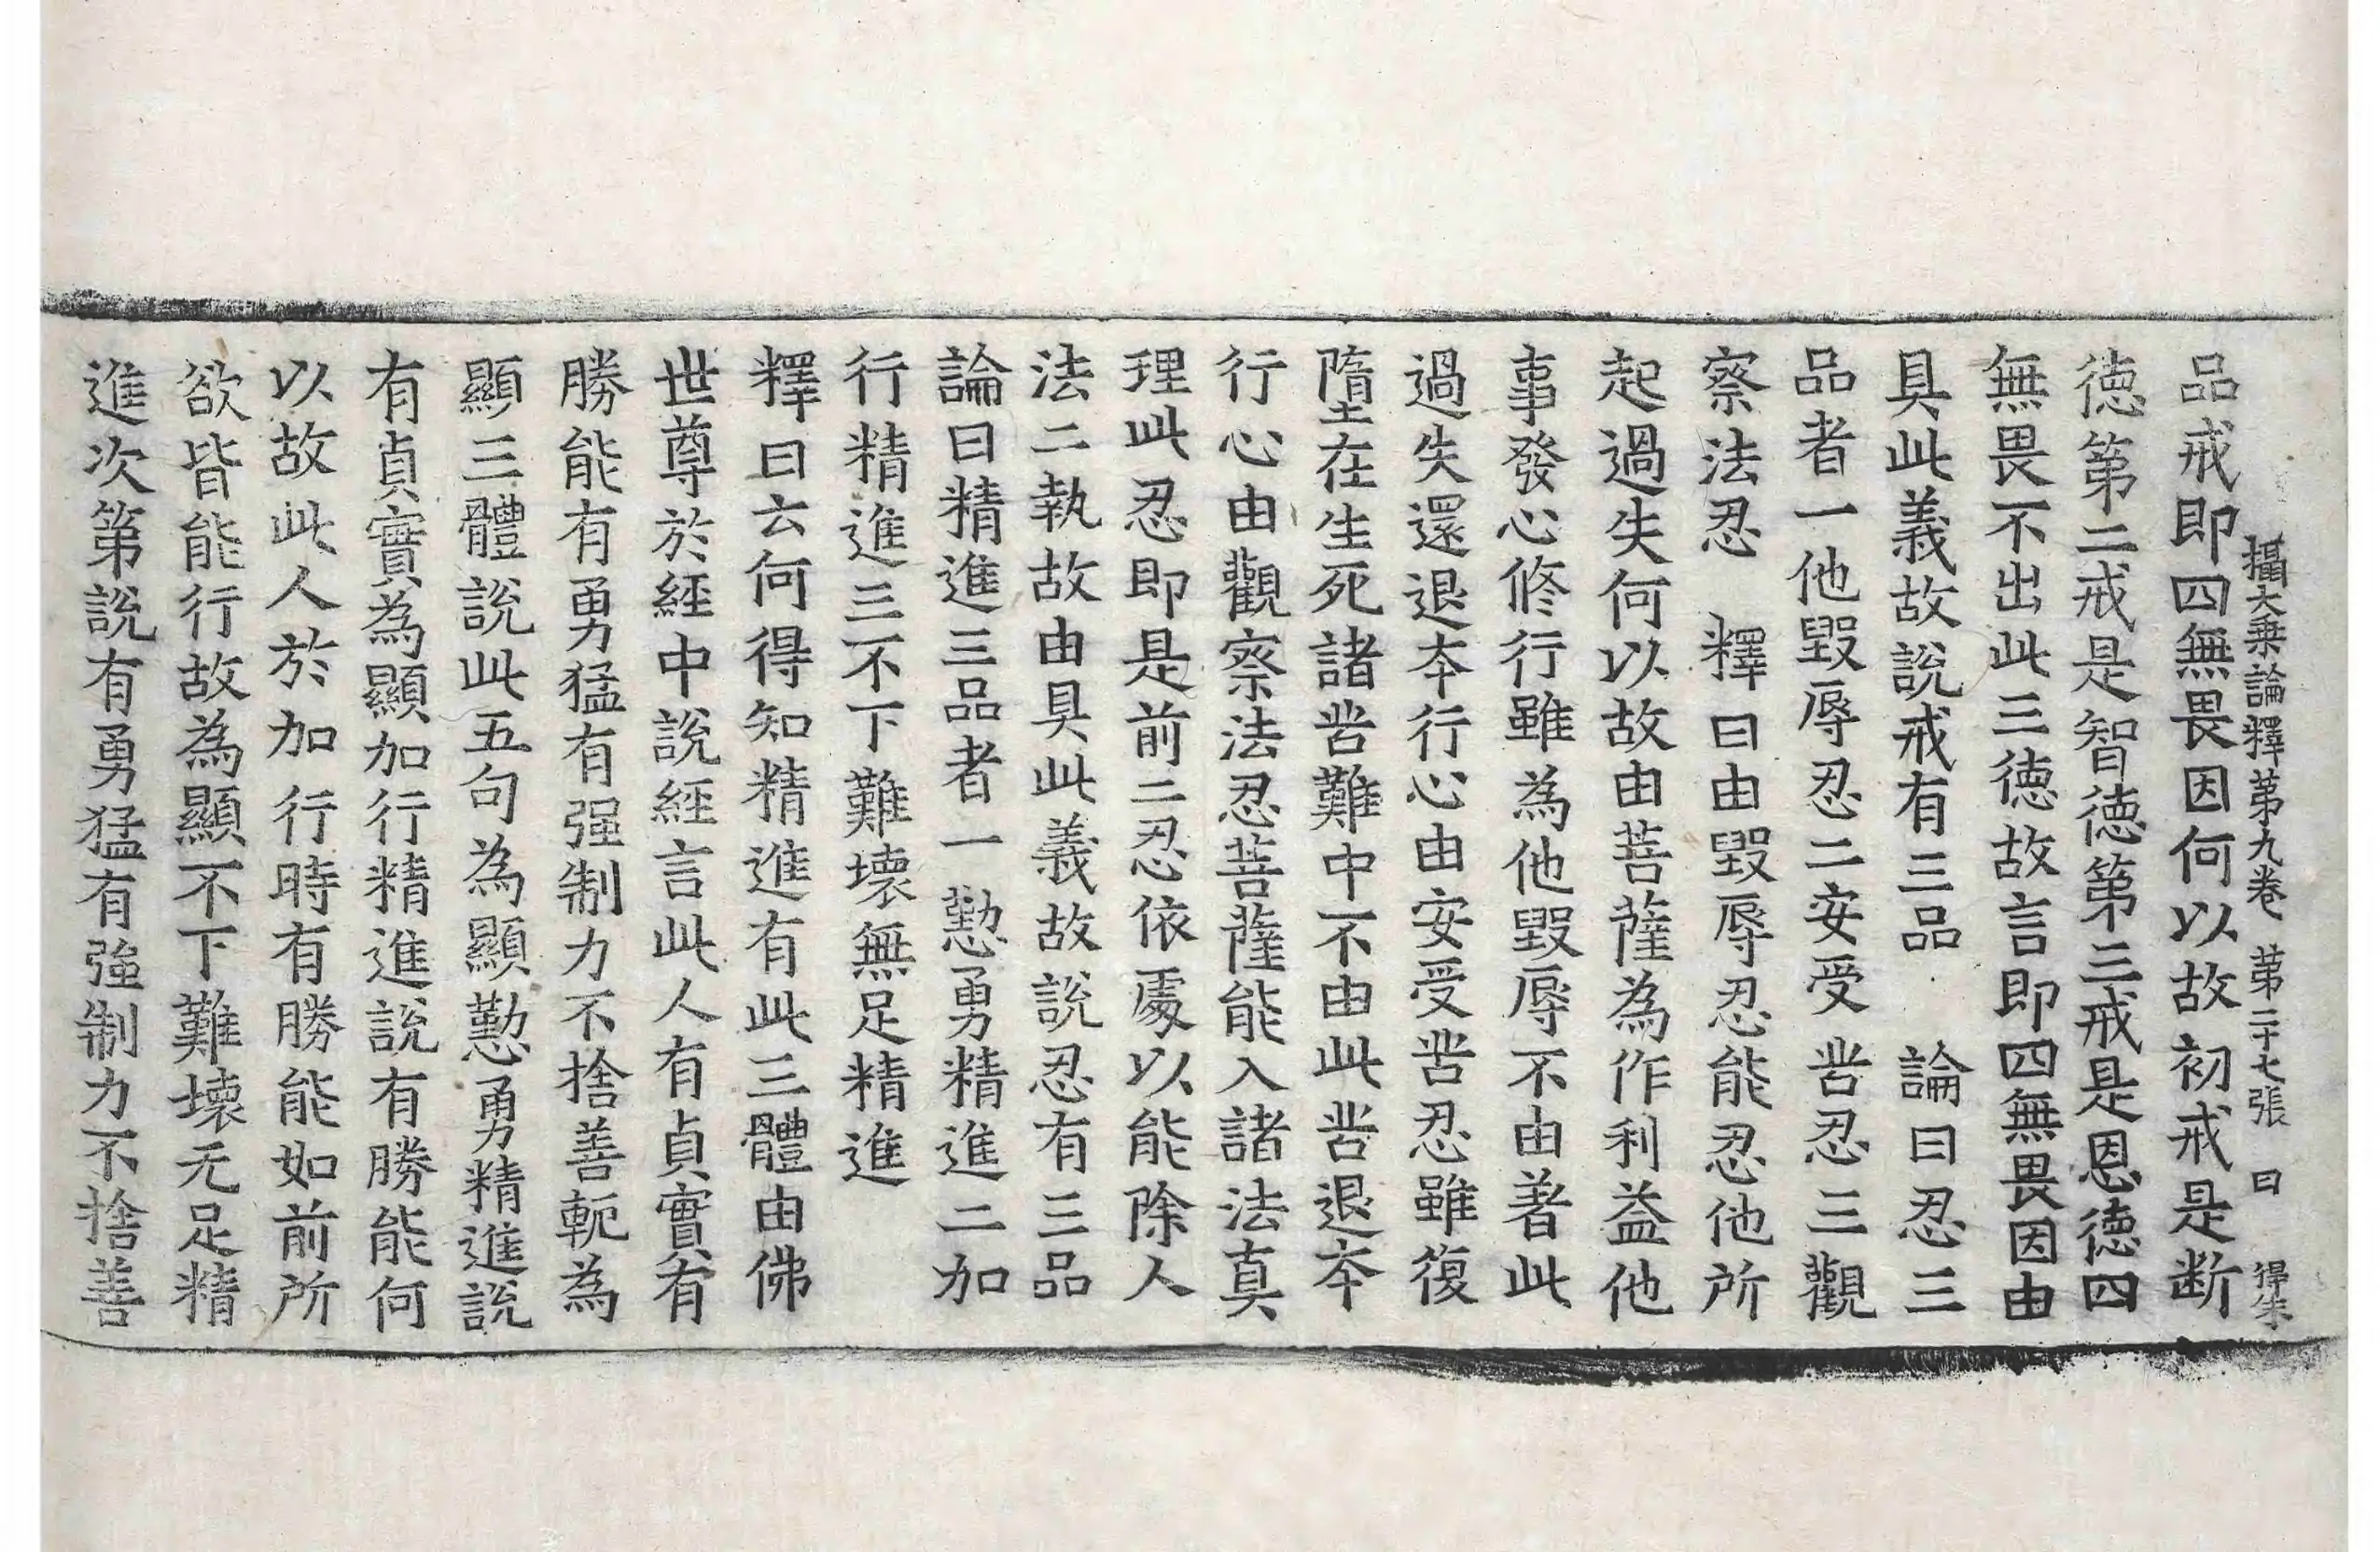 攝大乗論釋苐九卷　苐二十七張　曰　得朱
品戒即四無畏因何以故初戒是断
徳第二戒是智徳第三戒是恩徳四
無畏不出此三徳故言即四無畏因由
具此義故說戒有三品　論曰忍三
品者一他毀辱忍二安受苦忍三觀
察法忍　釋曰由毀辱忍能忍他所
起過失何以故由菩薩為作利益他
事發心修行雖為他毀辱不由著此
過失還退夲行心由安受苦忍雖復
墮在生死諸苦難中不由此苦退夲
行心由觀察法忍菩薩能入諸法真
理此忍即是前二忍依處以能除人
法二執故由具此義故說忍有三品
論曰精進三品者一懃勇精進二加
行精進三不下難壞無足精進
釋曰云何得知精進有此三體由佛
世尊於經中說經言此人有貞實有
勝能有勇猛有强制力不捨善軛為
顯三體說此五句為顯懃勇精進說
有貞實為顯加行精進說有勝能何
以故此人於加行時有勝能如前所
欲皆能行故為顯不下難壞无足精
進次第說有勇猛有強制力不捨善